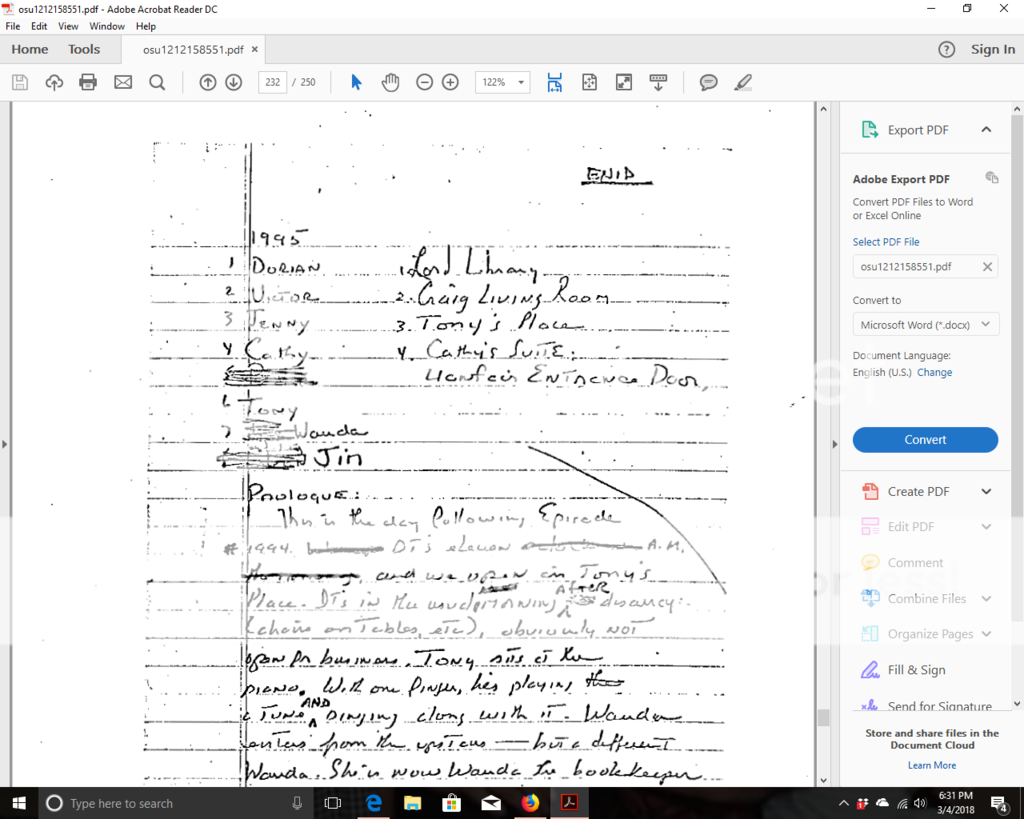 osu1212158551.pdf - Adobe Acrobat Reader DC
File Edit View Window Help
Home Tools osu1212158551.pdf × Sign In
232 / 250 122%
ENID
1995
1 DORIAN 1. Lord Library
2 VICTOR 2. Craig Living Room
3 JENNY 3. Tony's Place
4 Cathy 4. Cathy's SUITE:
Llanfair ENTRANCE DOOR,
6 Tony
7 Wanda
Jim
PROLOGUE:
This is the day following Episode
# 1994. It's eleven A.M.
and we open in Tony's
Place. It's in the usual morning AFTER disarray:
(chairs on Tables, etc), obviously NOT
open for business. Tony sits at the
piano. With one finger, he's playing
a Tune AND singing along with it. Wanda
enters from the upstairs — but a different
Wanda. She is now Wanda the bookkeeper
Export PDF
Adobe Export PDF
Convert PDF Files to Word
or Excel Online
Select PDF File
osu1212158551.pdf
Convert to
Microsoft Word (*.docx)
Document Language:
English (U.S.) Change
Convert
Create PDF
Edit PDF
Comment
Combine Files
Organize Pages
Fill & Sign
Send for Signature
Store and share files in the
Document Cloud
Learn More
Type here to search
6:31 PM
3/4/2018
4